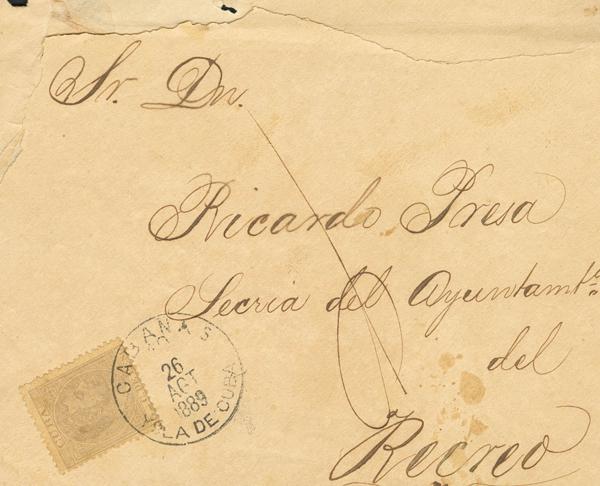 Sr. Dn.
Ricardo Presa
Secria del Ayuntamto.
del
Recreo
CABANAS
26
AGT
1889
ISLA DE CUBA
CUBA